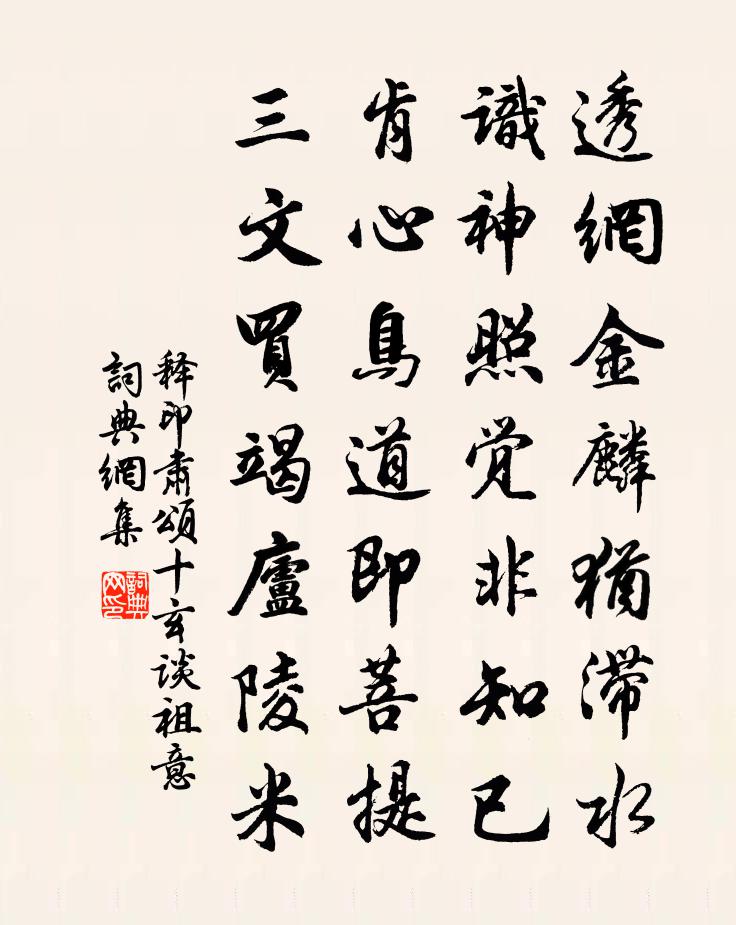 透網金麟猶滞水
識神照覚非知已
肯心鳥道即菩提
三文買竭廬陵米
释印肃頌十玄谈祖意
詞典網集
詞典网印